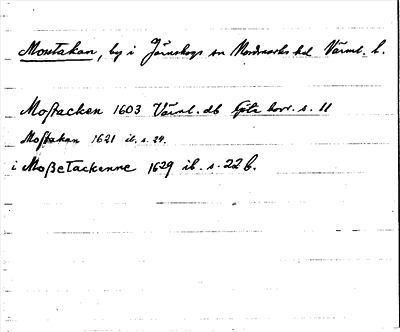 Mosstakan, by i Järnskogs sn Nordmarks hd Värml. l.
Moſtacken 1603 Värml. db Göta hovr. s. 11
Moſtakan 1621 ib. s. 24.
i Moßetackenne 1629 ib. s. 22 b.